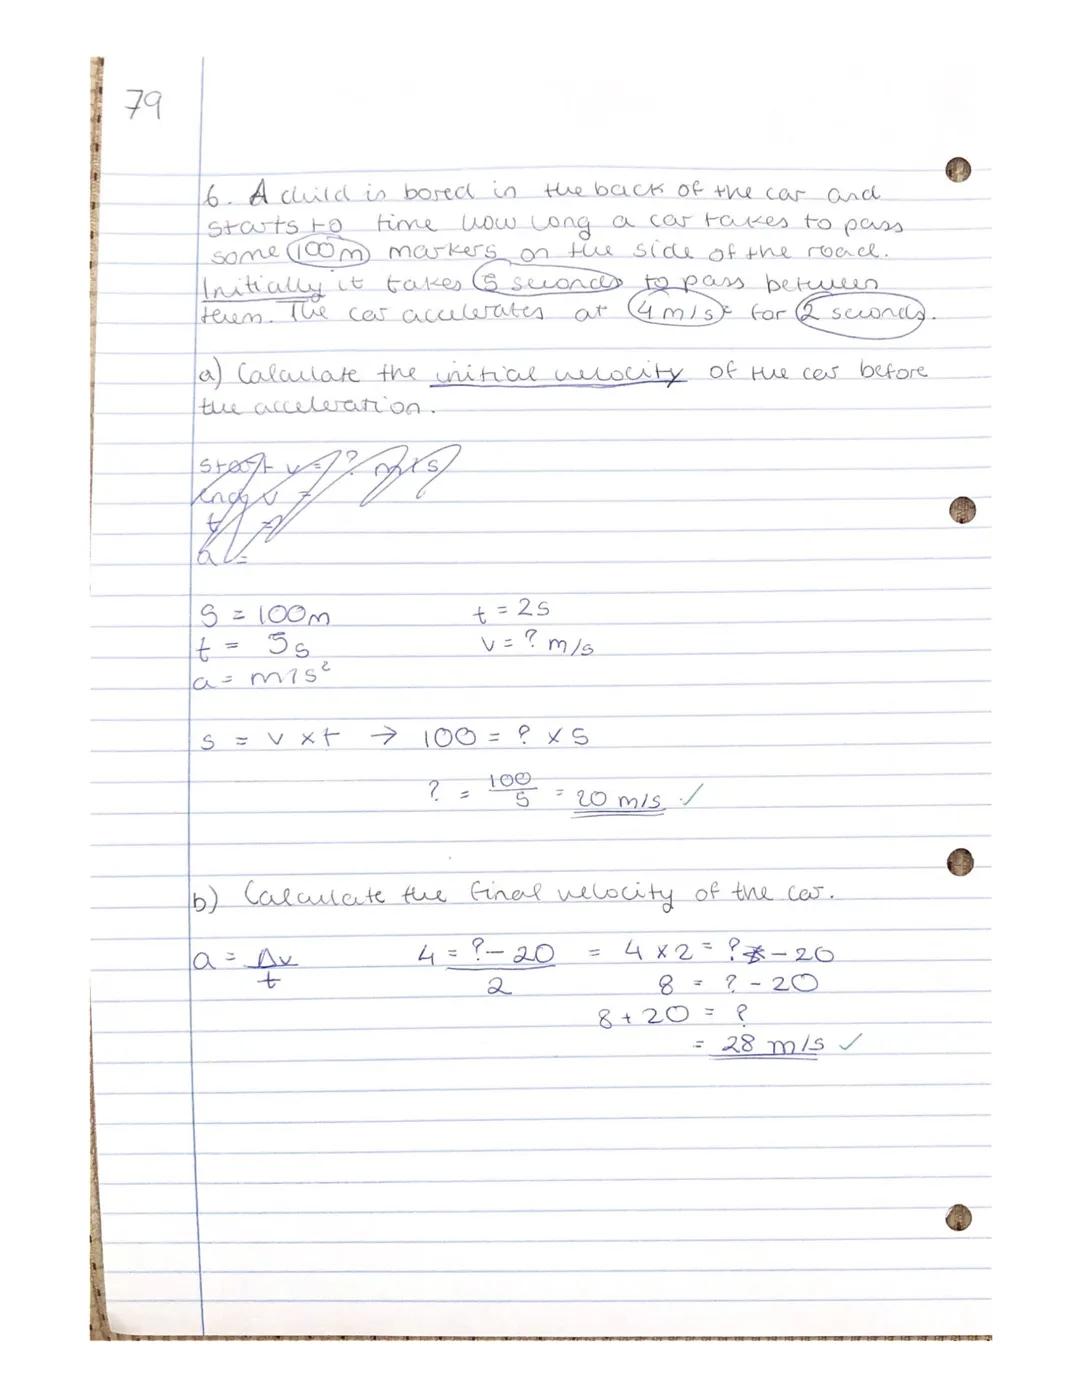 79
6. A child is bored in the back of the car and
starts to time how long a car takes to pass
some 100m markers on the side of the road.
Initially it takes 5 seconds to pass between
them. The car accelerates at 4 m/s² for 2 seconds.
a) Calculate the initial velocity of the car before
the acceleration.
start v = ? m/s
end v =
t =
a =
S = 100m t = 2s
t = 5s v = ? m/s
a = m/s²
s = v x t → 100 = ? x 5
? = 100/5 = 20 m/s ✓
b) Calculate the final velocity of the car.
a = Δv/t 4 = ?-20/2 = 4 x 2 = ? - 20
8 = ? - 20
8 + 20 = ?
= 28 m/s ✓